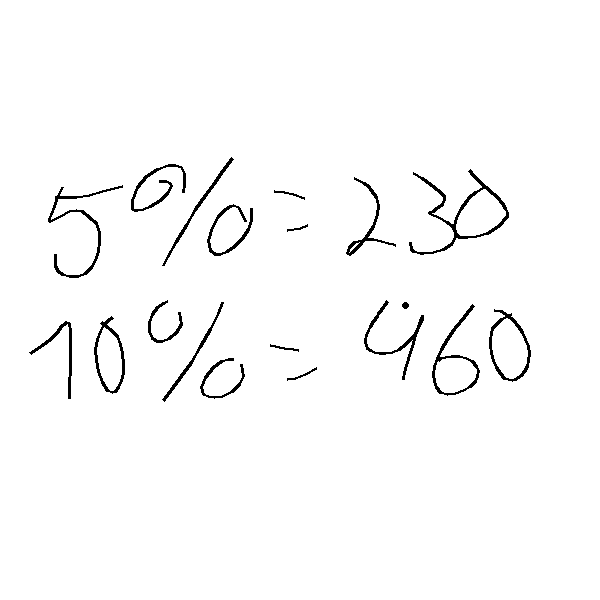 5%=230
10%=460